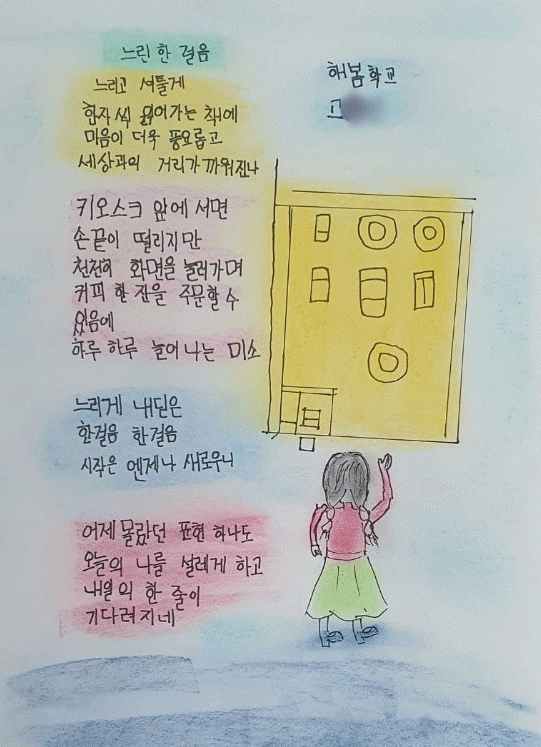 느린 한 걸음
해봄학교
고
느리고 서툴게
한자씩 읽어가는 책에
마음이 더욱 풍요롭고
세상과의 거리가 까워진나
키오스크 앞에 서면
손끝이 떨리지만
천천히 화면을 눌러가며
커피 한 잔을 주문할 수
있음에
하루 하루 늘어 나는 미소
느리게 내딛은
한걸음 한걸음
시작은 엔제나 새로우니
어제 몰랐던 표현 하나도
오늘의 나를 설레게 하고
내일의 한 줄이
기다려지네